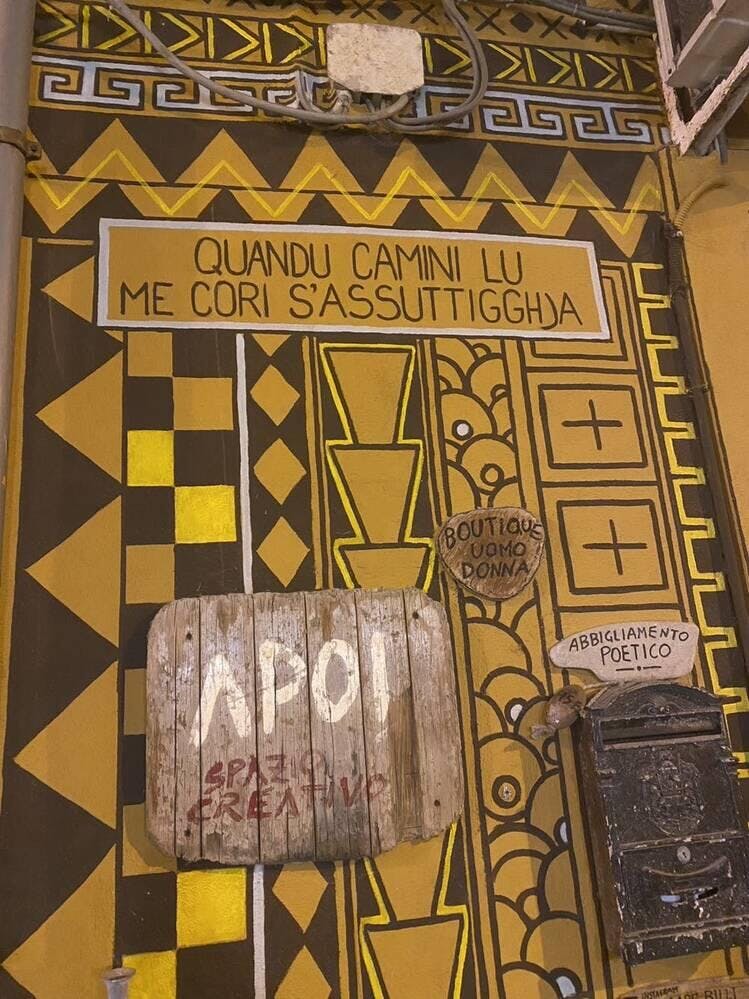 QUANDU CAMINI LU
ME CORI S'ASSUTTIGGHJA
BOUTIQUE
UOMO
DONNA
ABBIGLIAMENTO
POETICO
APOI
SPAZIO
CREATIVO